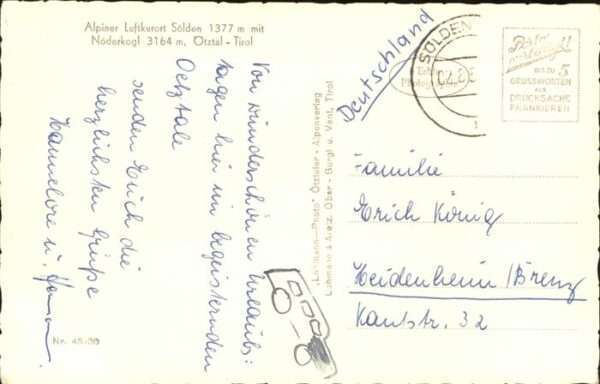 Alpiner Luftkurort Sölden 1377 m mit
Nöderkogl 3164 m, Ötztal - Tirol
Von wunderschönen Urlaubs-
tagen hier im begeisternden
Oetztale
senden Euch die
herzlichsten Grüße
Hannelore u.
Nr. 45-39
"Lohmann-Photo" Ötztaler - Alpenverlag
Lohmann & Ober - Gurgl u. Vent, Tirol
Deutschland
SÖLDEN
Echte
Photographie
BIS ZU 5
GRUSSWORTEN
ALS
DRUCKSACHE
FRANKIEREN
Familie
Erich König
Heidenheim/Brenz
Kantstr. 32